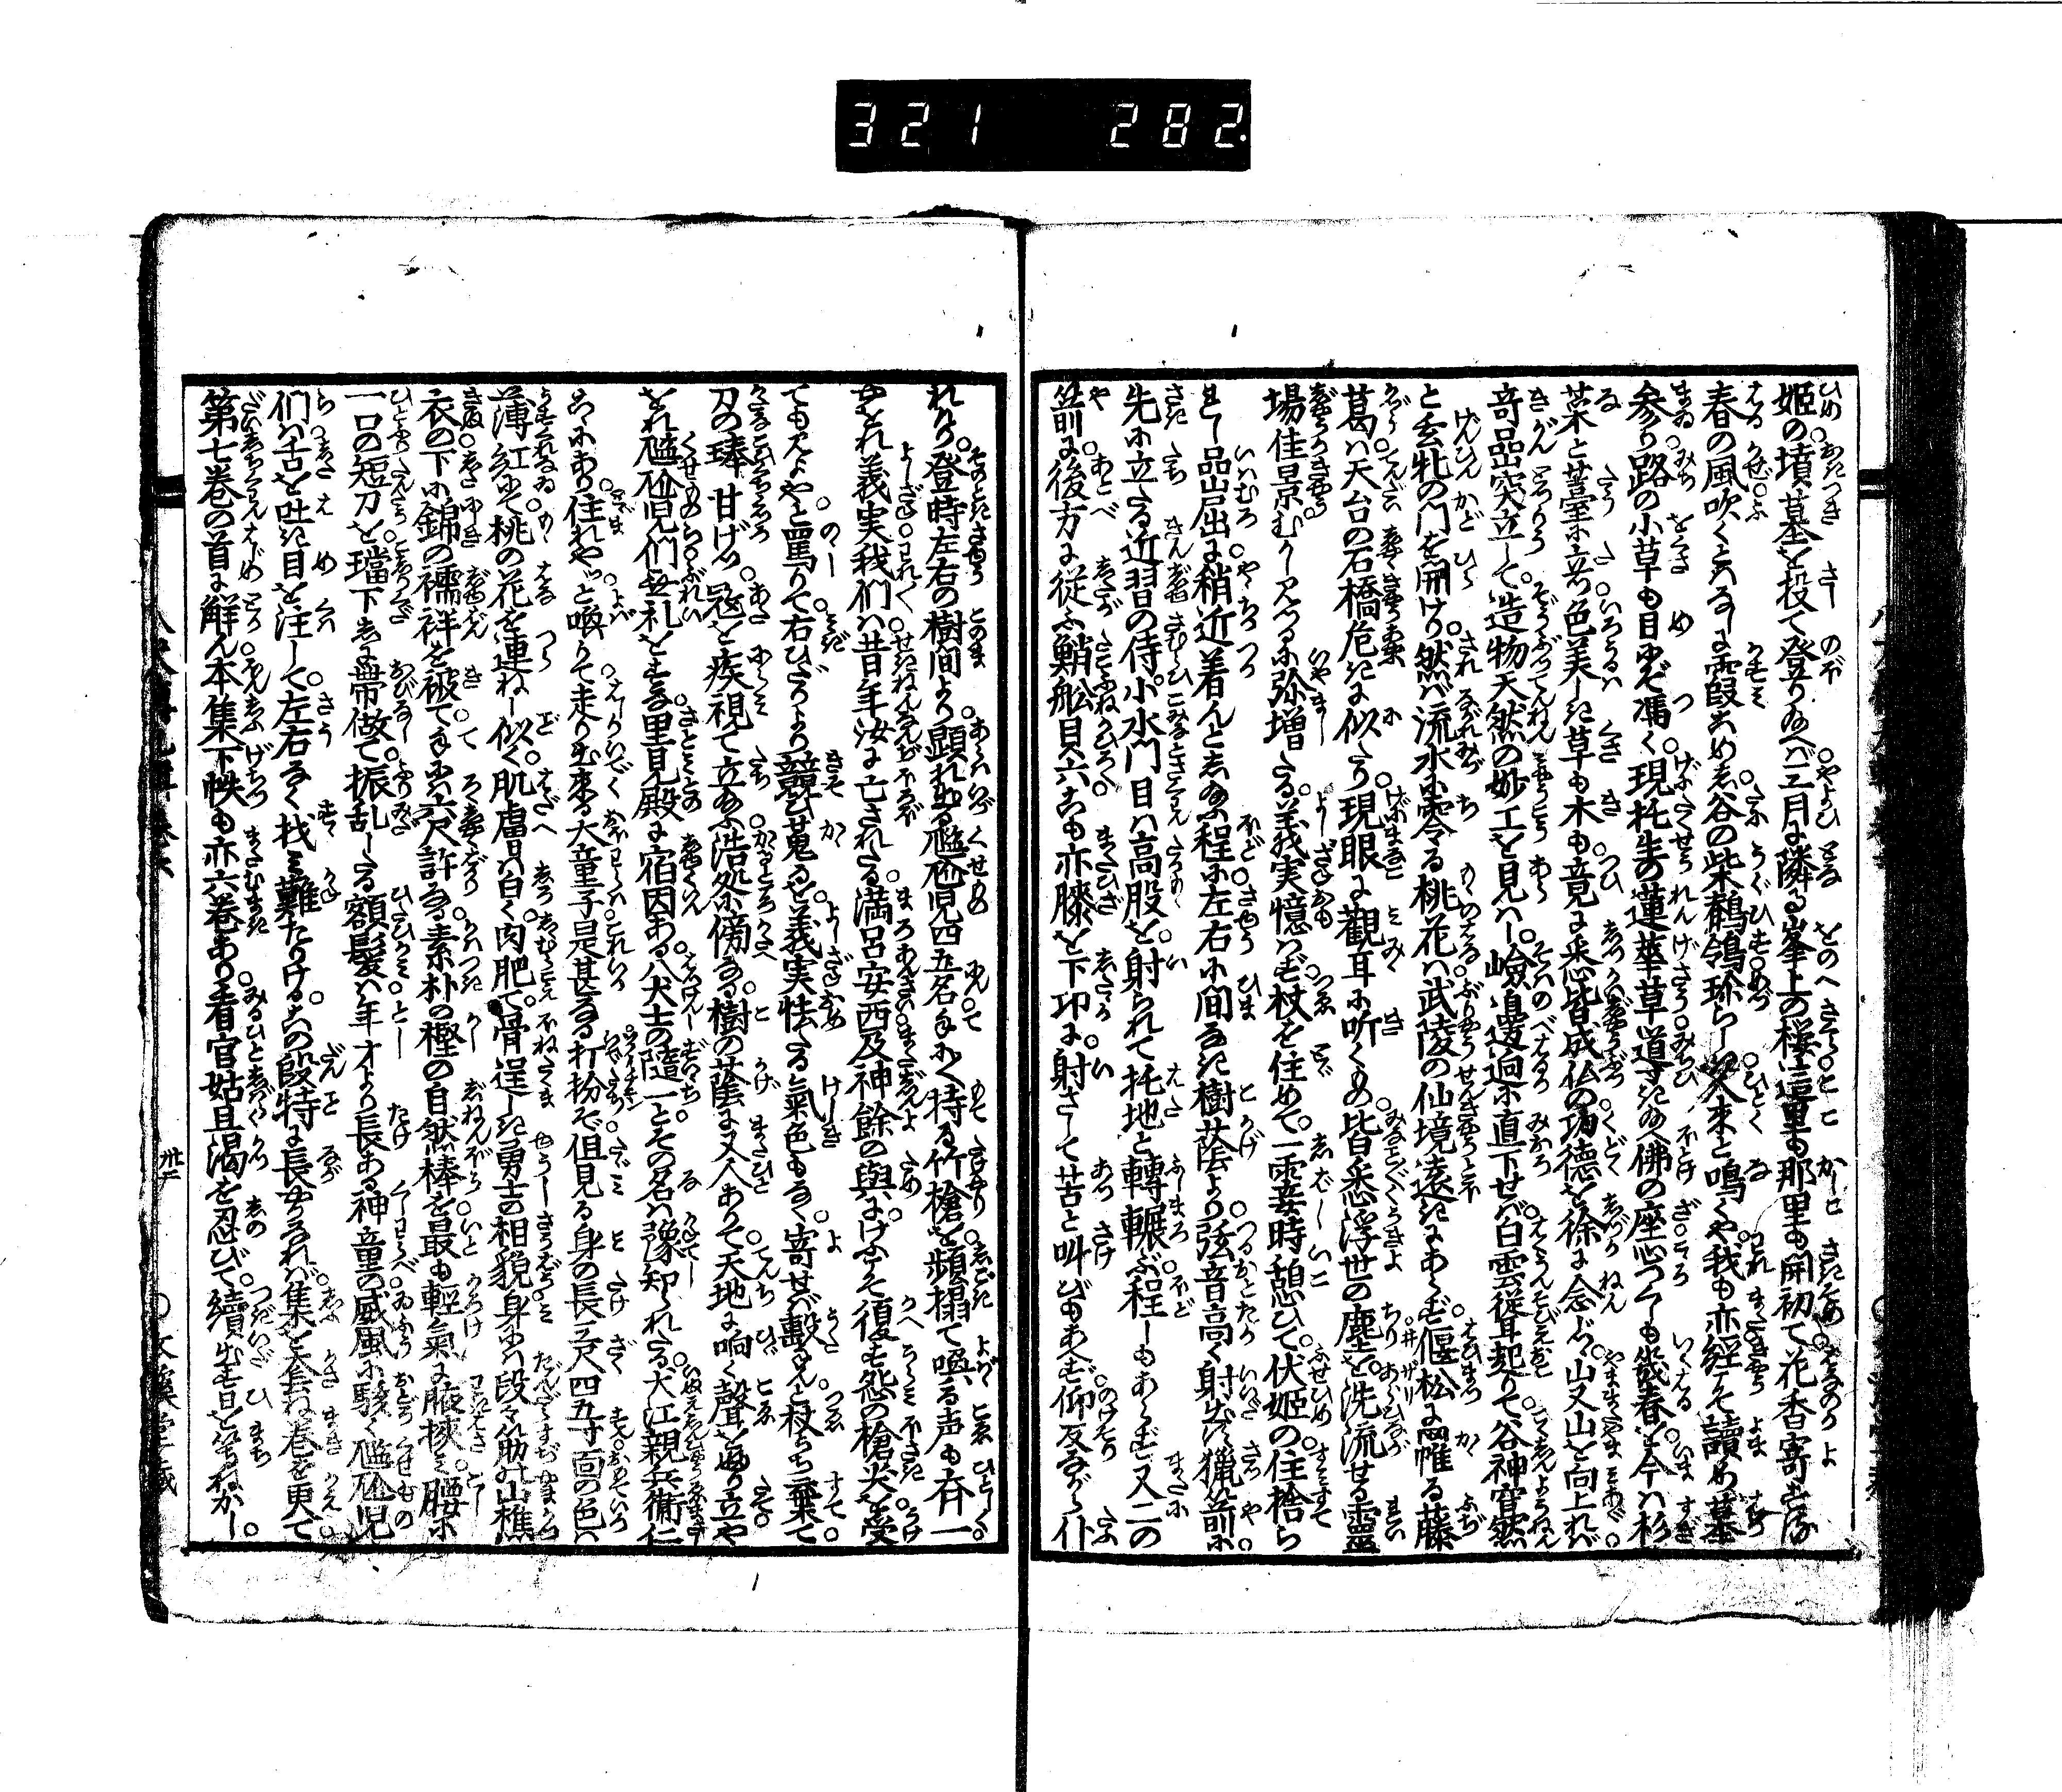 321 282
姫の墳墓を投て登り給へば三月に隣る峯上の桜這里も那里も開初て花香寄する
春の風吹くとはなしに霞こめし谷の柴鶺鴒珍らし人来と鳴くや我も亦経こそ読め墓
参り路の小草も目出て馮く現牡の蓮華草導き給へ佛の座心つくしも幾春を今は杉
菜と薹に立つ色美しき草も木も竟に悉皆成仏の功徳を徐に念じつ山又山を向上れば
奇品突立して造物天然の妙工を見はし嶮邊迥に直下せば白雲従耳起りて谷神窅然
と玄牝の門を開けり然ば流水に零る桃花は武陵の仙境遠きにあらず偃松に罹る藤
葛は天台の石橋危きに似たり現眼に観耳に听くもの皆悉浮世の塵を洗流せる霊
場佳景むかし見つるに弥増たる義実憶はず杖を住めて一霎時憩ひて伏姫の住捨ら
れし品出に稍近着んとし給ふ程に左右に間なき樹蔭より弦音高く射出す猟箭に
先に立たる近習の侍小水門目は高股を射られて托地と轉輾ぶ程しもあらず又二の
箭に後方に従ふ鮹舩貝六さも亦膝を下卭に射さして苦と叫びもあへず仰反ながら仆
れけり登時左右の樹間より顕れ出る尷尬児四五名手に持る竹槍を頻搨て喚る声も斉一
やをれ義実我們は昔年汝に亡されたる満呂安西及神餘の與にけふこそ復す怨の槍尖を受
ても見よやと罵りて右ひだりより競ひ蒐るを義実怯たる気色もなく寄せば敵んと杖うち棄て
刀の璏甘げつゝ寇を疾視て立給ふ浩処に傍なる樹の蔭に又人ありて天地に响く声をふり立や
をれ尷尬児們無礼をすな里見殿に宿因ある八犬士の隨一とその名は豫知られたる犬江親兵衛仁
こゝにあり住れやッと喚りて走り出来る大童子是甚なる打扮ぞ但見る身の長三尺四五寸面の色は
薄紅にて桃の花を連ねし似く肌膚は白く肉肥て骨逞しき勇士の相貌身には段々筋の山樵
衣の下に錦の襦袢を被て手には六尺許なる素朴の樫の自然棒を最も軽気に腋挟み腰に
一口の短刀を璫下しに帯做て振乱したる額髪は年才より長ある神童の威風に駭く尷尬児
們は舌を吐き目を注して左右なく找み難たりけるこの段特に長やかなれば集を累ね巻を更て
第七巻の首に解ん本集下帙も亦六巻あり看官姑且渇を忍びて續出す日を待ねかし